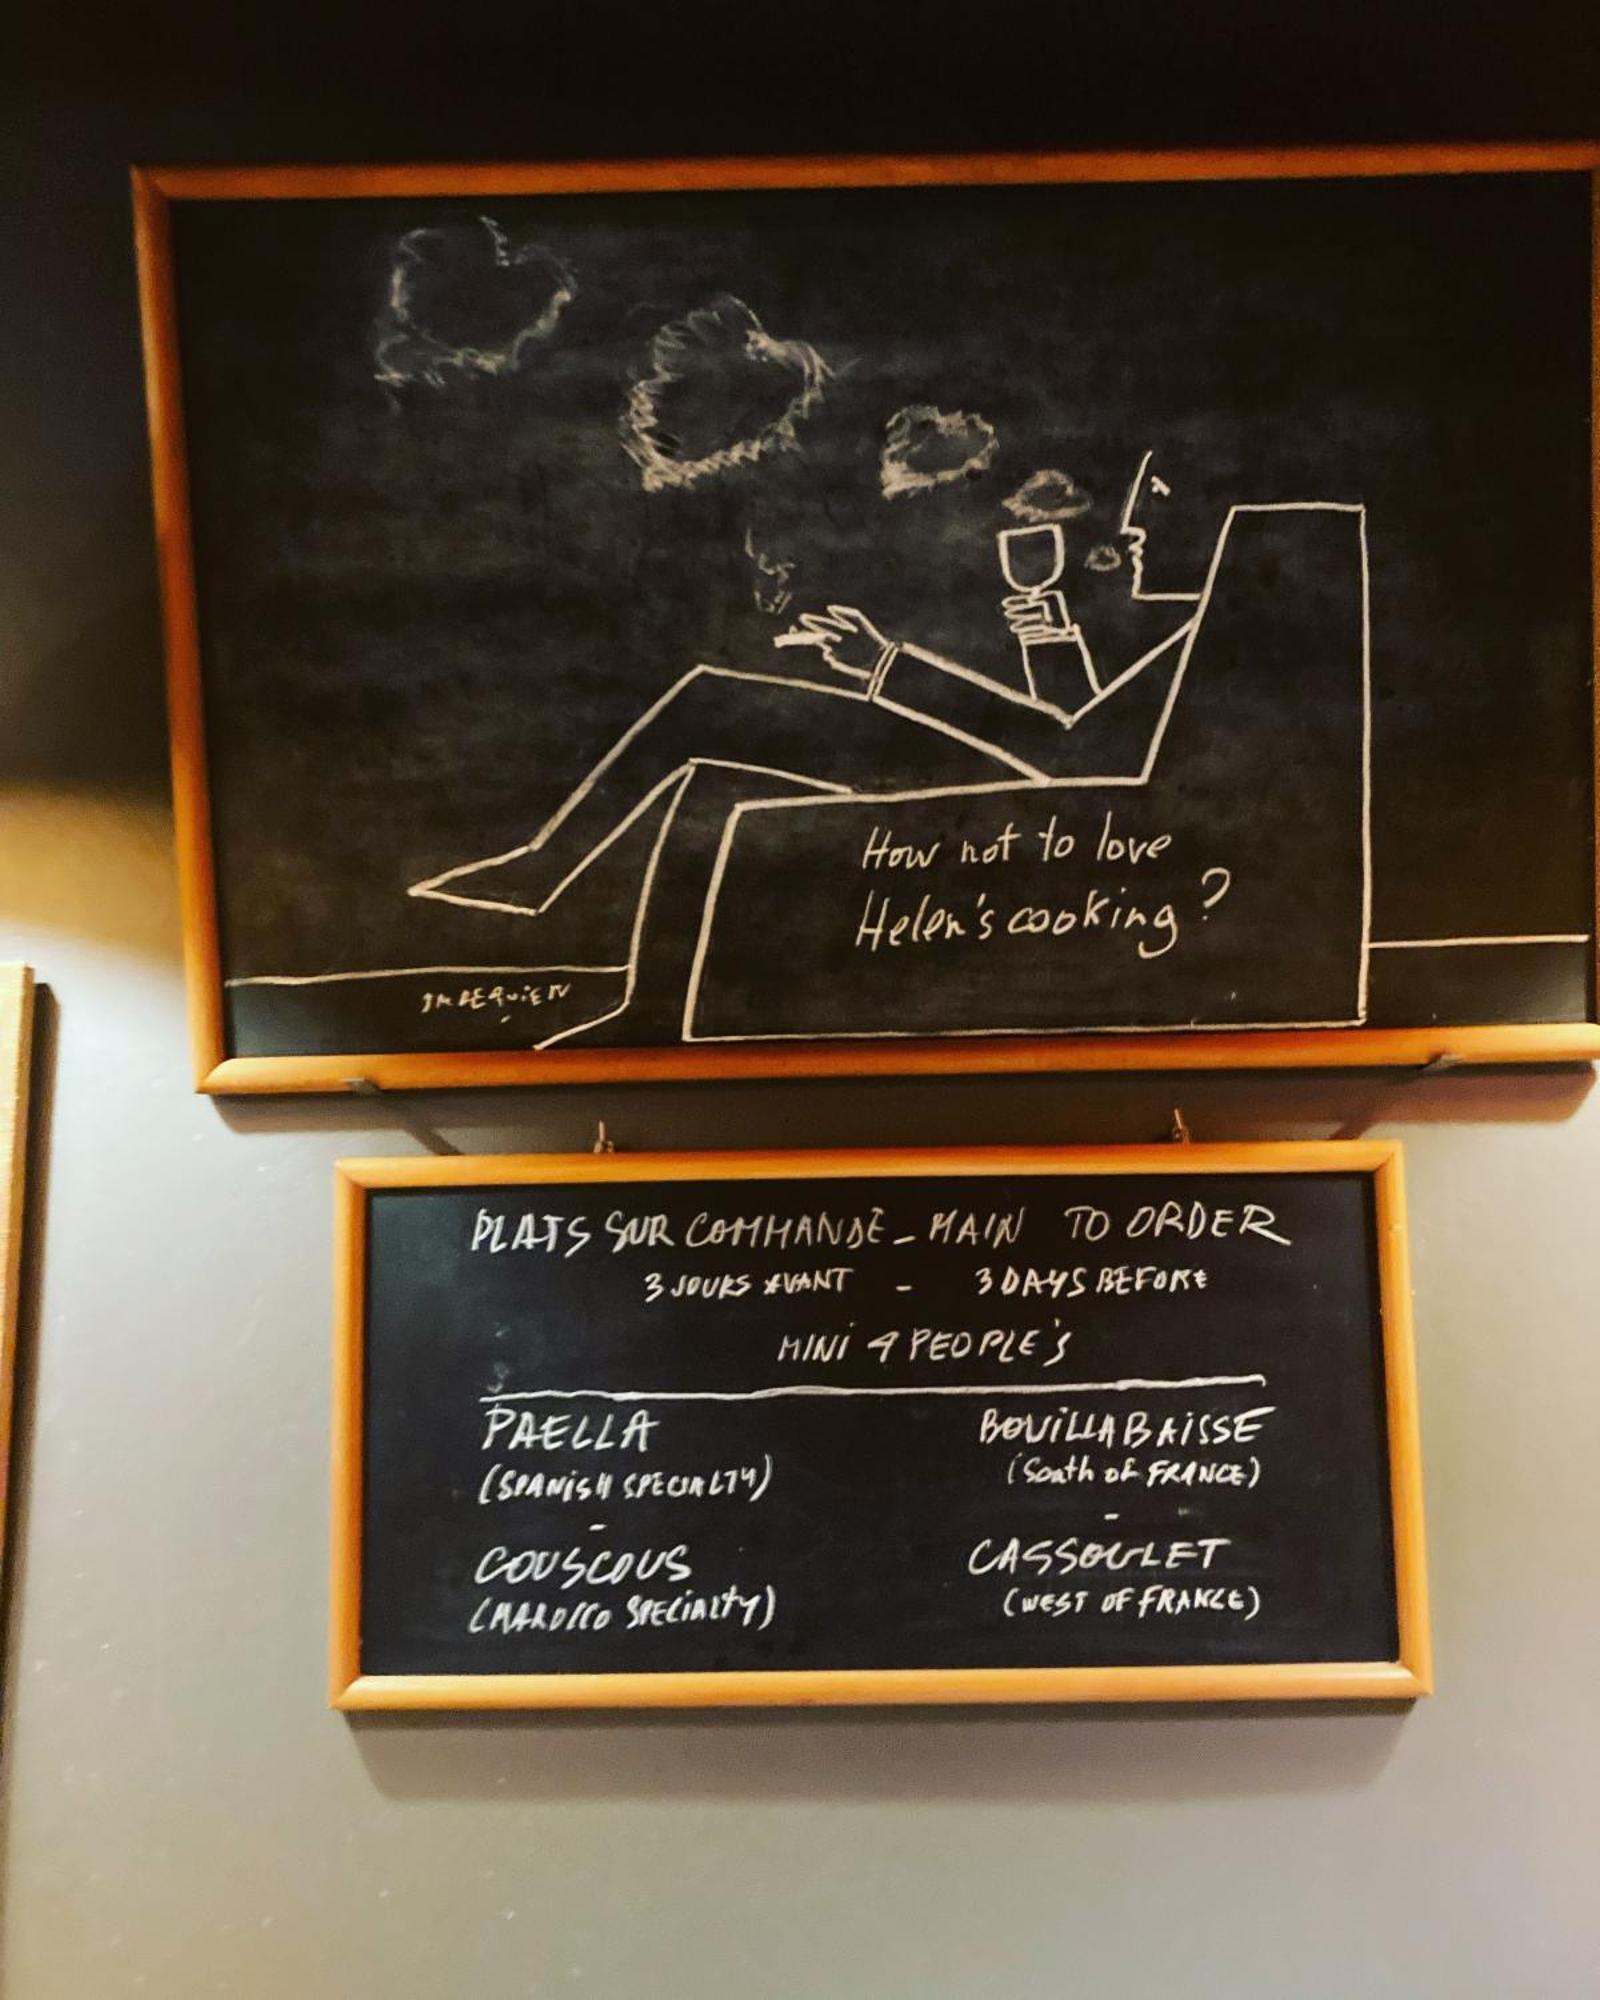 How not to love
Helen's cooking ?
PLATS SUR COMMANDE - MAIN TO ORDER
3 JOURS AVANT - 3 DAYS BEFORE
MINI 4 PEOPLE'S
PAELLA
(SPANISH SPECIALTY)
-
COUSCOUS
(MAROCCO SPECIALTY)
BOUILLABAISSE
(South of FRANCE)
-
CASSOULET
(WEST OF FRANCE)